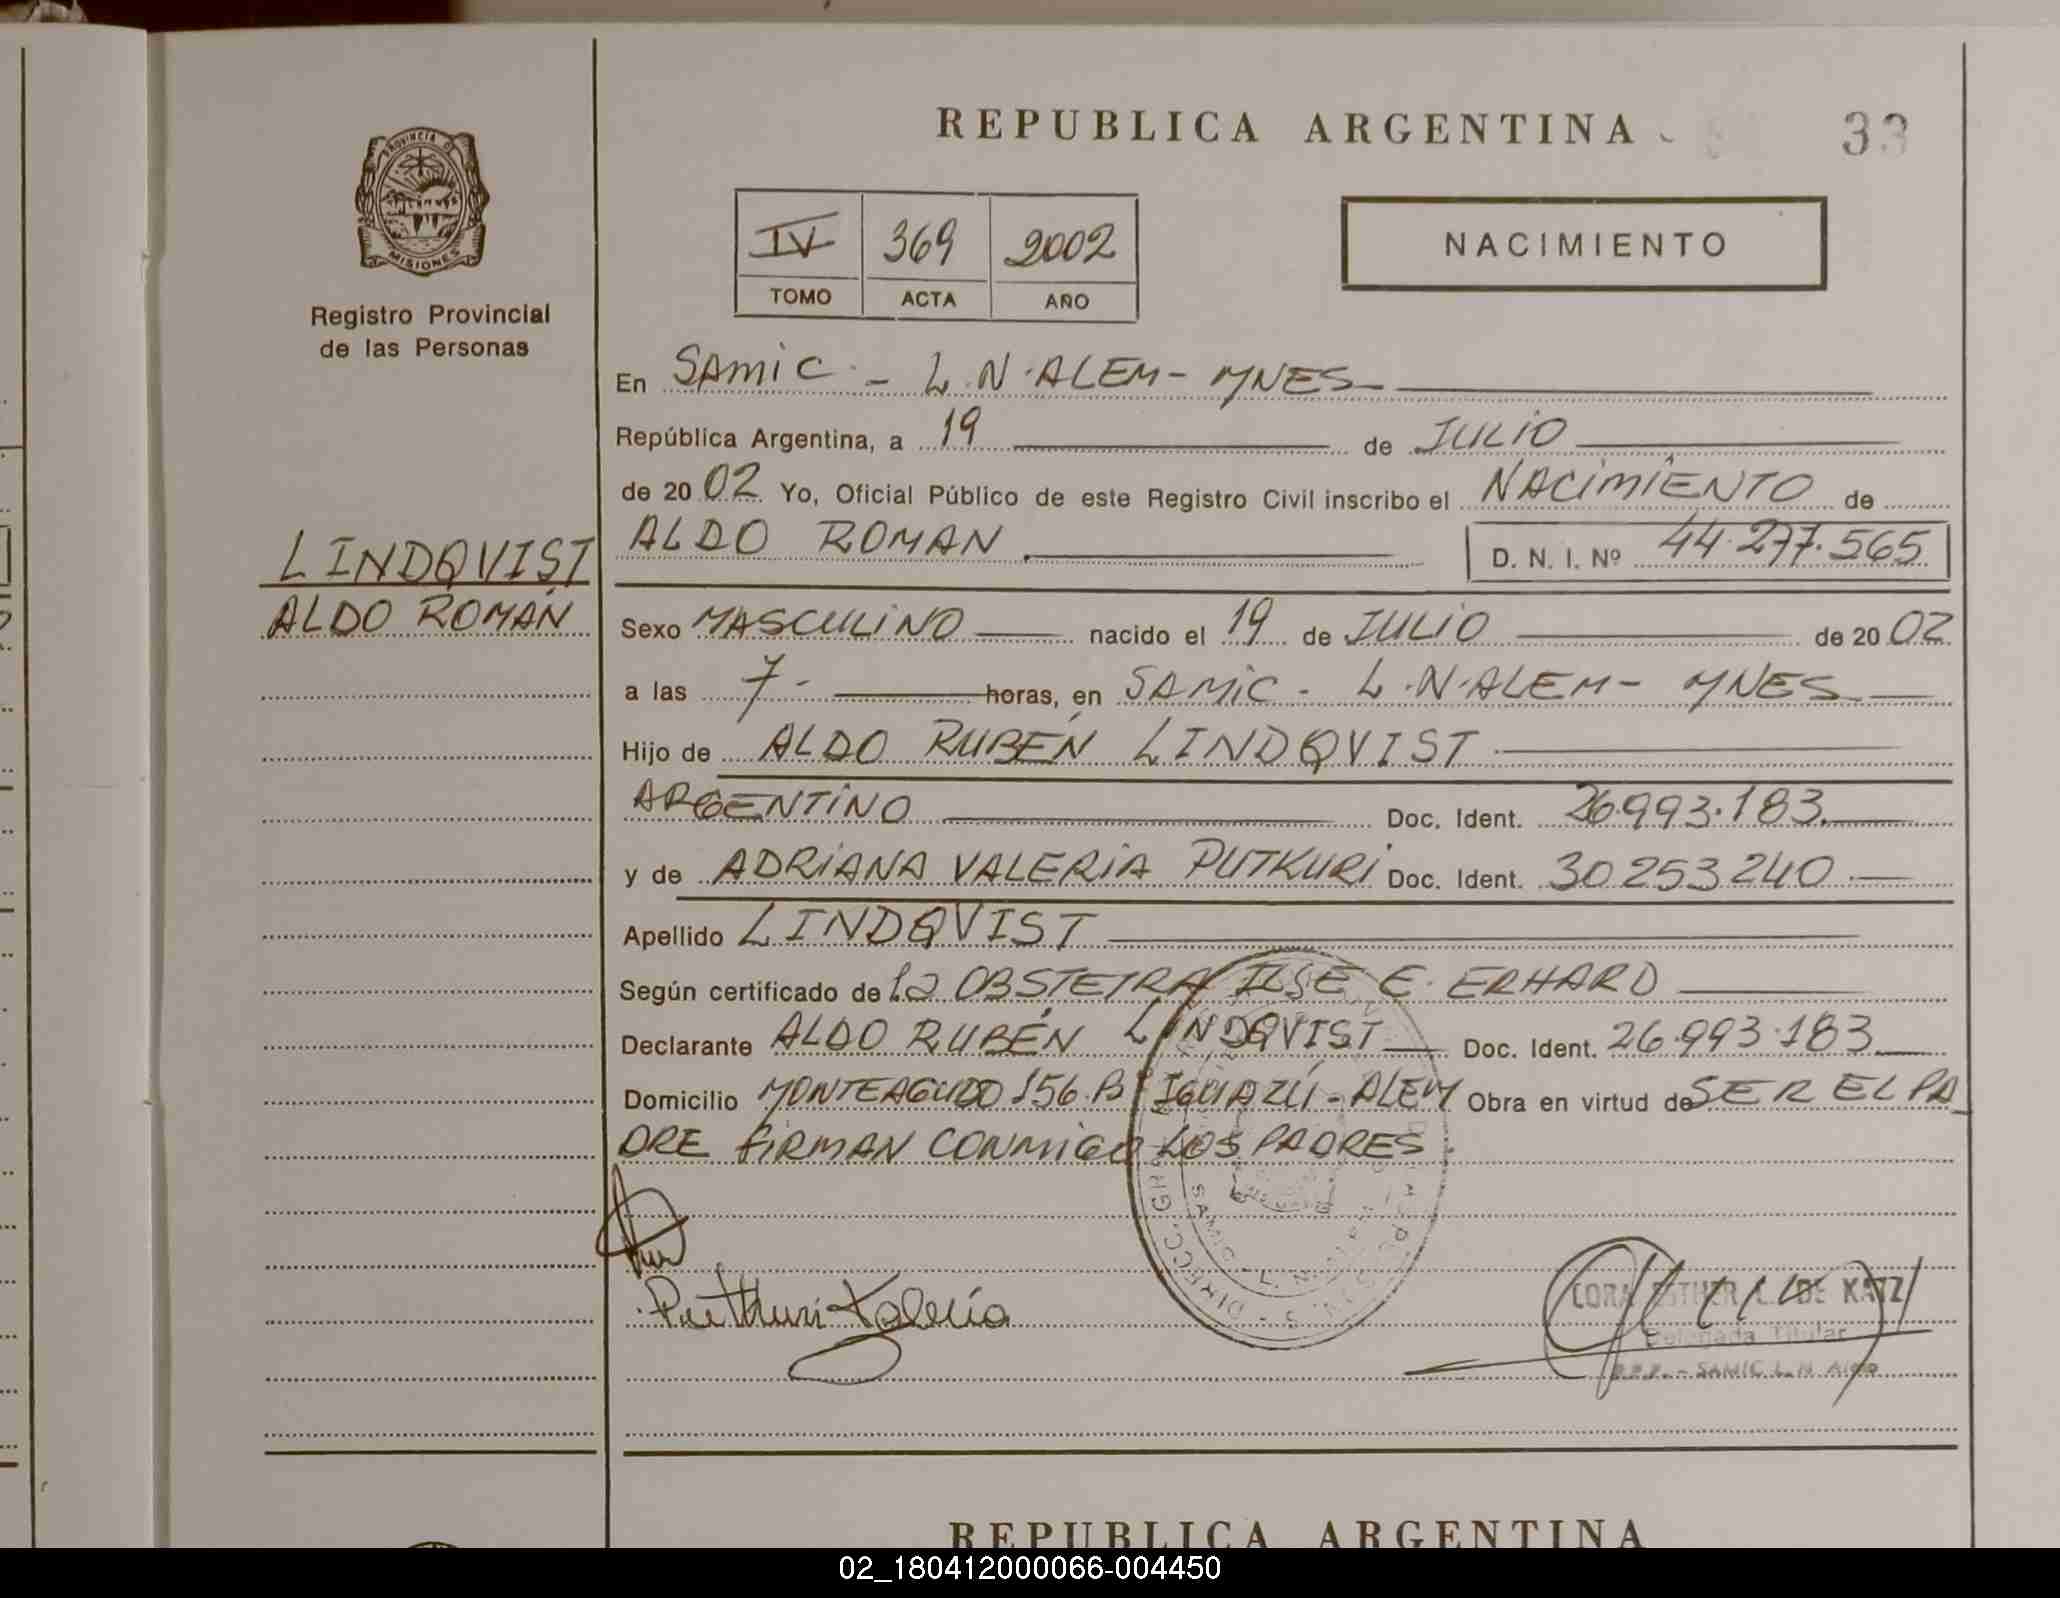 REPUBLICA ARGENTINA
33
PROVINCIA DE
MISIONES
Registro Provincial
de las Personas
IV 369 2002
TOMO ACTA AÑO
NACIMIENTO
En SAMIC - L.N. ALEM - MNES
República Argentina, a 19 de JULIO
de 2002 Yo, Oficial Público de este Registro Civil inscribo el NACIMIENTO de
ALDO ROMAN D. N. I. Nº 44.277.565
LINDQVIST
ALDO ROMÁN
Sexo MASCULINO nacido el 19 de JULIO de 2002
a las 7.- horas, en SAMIC - L.N. ALEM - MNES
Hijo de ALDO RUBÉN LINDQVIST
ARGENTINO Doc. Ident. 26.993.183
y de ADRIANA VALERIA PUTKURI Doc. Ident. 30253240
Apellido LINDQVIST
Según certificado de la OBSTETRA ILSE E. ERHARD
Declarante ALDO RUBÉN LINDQVIST Doc. Ident. 26.993.183
Domicilio MONTEAGUDO 156 Bº IGUAZÚ - ALEM Obra en virtud de SER EL PA
DRE FIRMAN CONMIGO LOS PADRES
Putkuri Valeria
DE KATZ
Delegada Titular
SAMIC L.N. Alem
REPUBLICA ARGENTINA
02_180412000066-004450